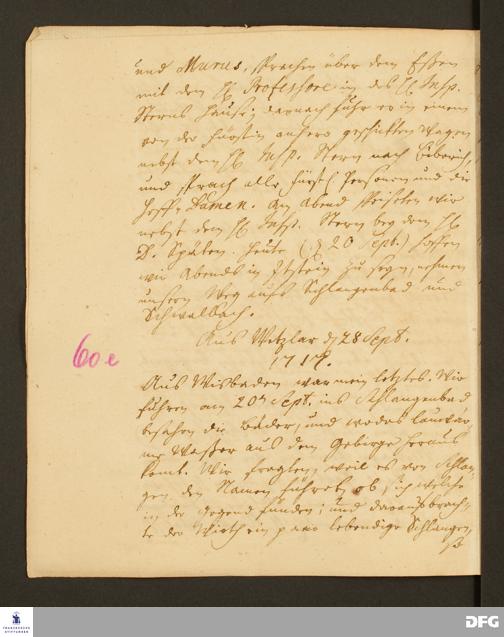 und Munus, sprachen über dem Eßen
mit dem H. Professore in des H. Insp.
Sterns Hause; darnach fuhr er in einem
von der Fürstin anhero geschickten Wagen
nebst dem H. Insp. Stern nach Biberich,
und sprach alle fürstl. Personen und die
Hoff-Damen. Am Abend speiseten wir
nebst dem H. Insp. Stern bey dem H.
D. Späten. Heute (d 20 Sept.) hoffen
wir Abends in Itstein zu seyn, nehmen
unsern Weg aufs Schlangenbad und
Schwalbach.
Aus Wetzlar d 28 Sept.
1717.
60 e
Aus Wisbaden war mein letztes. Wir
fuhren am 20 Sept. ins Schlangenbad
besahen die Bäder, und wo das
Waßer aus dem Gebirge heraus
komt. Wir fragten, weil es von Schlan-
gen den Namen führet, ob sich welche
in der Gegend funden; und darauf brach-
te der Wirth ein paar lebendige Schlangen
FRANCKESCHE STIFTUNGEN
DFG